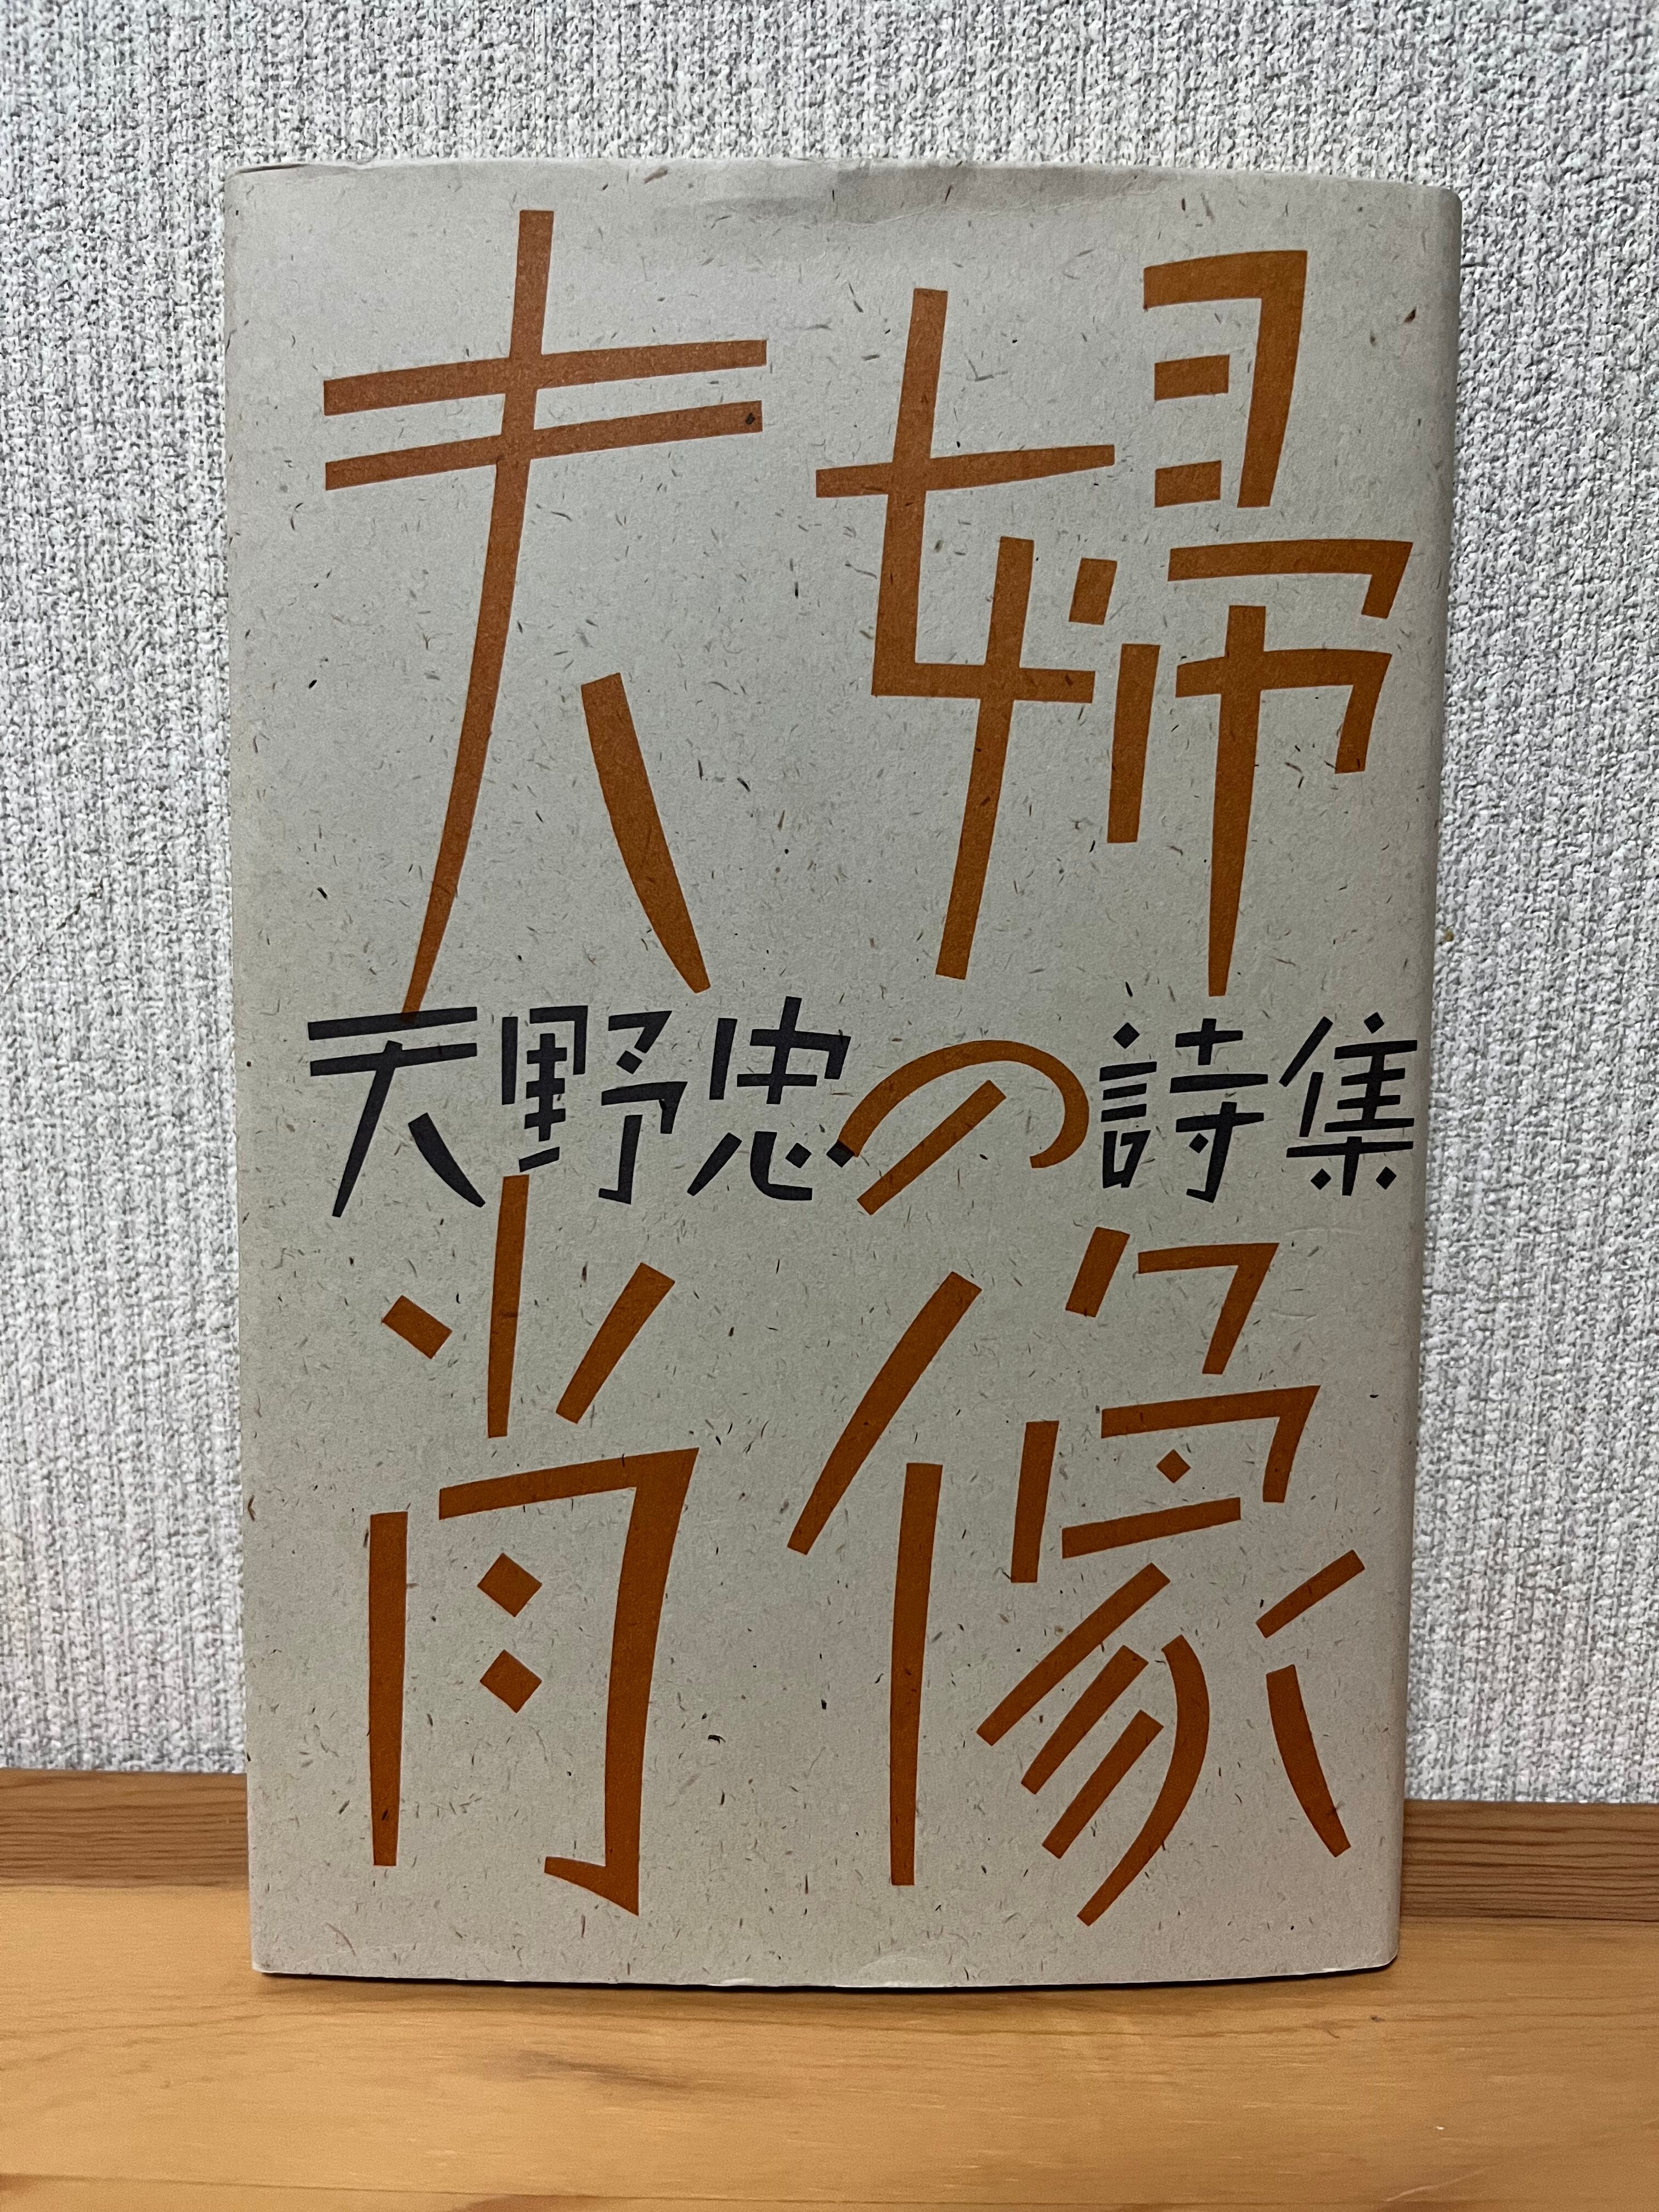 夫婦
の
肖像
天野忠詩集